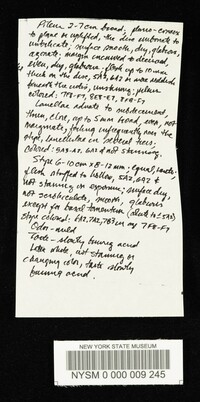 Pileus 2-7 cm broad, plano-convex
to plane or uplifted, the disc umbonate to
umbilicate, surface smooth, dry, glabrous,
azonate; margin incurved to decurved,
even, dry, glabrous. flesh up to 10 mm
thick on the disc, 5A2, 6A2 or wax reddish
beneath the cutis, unstaining; pileus
colored: 7F8-F7, 8E8-E7, 8F8-F7
Lamellae adnate to subdecurrent,
thin, close, up to 5 mm broad, even, not
marginate, forking infrequently near the
stipe, lamellulae in several tiers;
colored: 5A2, 6A2 & not staining.
Stipe 6-10 cm x 8-12 mm; equal, terete,
flesh stuffed to hollow, 5A2, 6A2 &
not staining on exposure; surface dry,
not scrobiculate, smooth, glabrous
except for basal tomentum
stipe colored: 6A2, 7A2, 7B3 or 7F8-F7
Odor - mild
Taste - slowly burning acrid
Latex white, not staining or
changing color, taste slowly
burning acrid.
NEW YORK STATE MUSEUM
NYSM 0 000 009 245